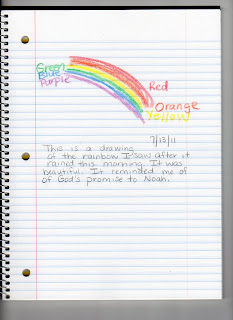 Green
Blue
Purple
Red
Orange
Yellow
7/13/11
This is a drawing
of the rainbow I saw after it
rained this morning. It was
beautiful. It reminded me of
of God's promise to Noah.